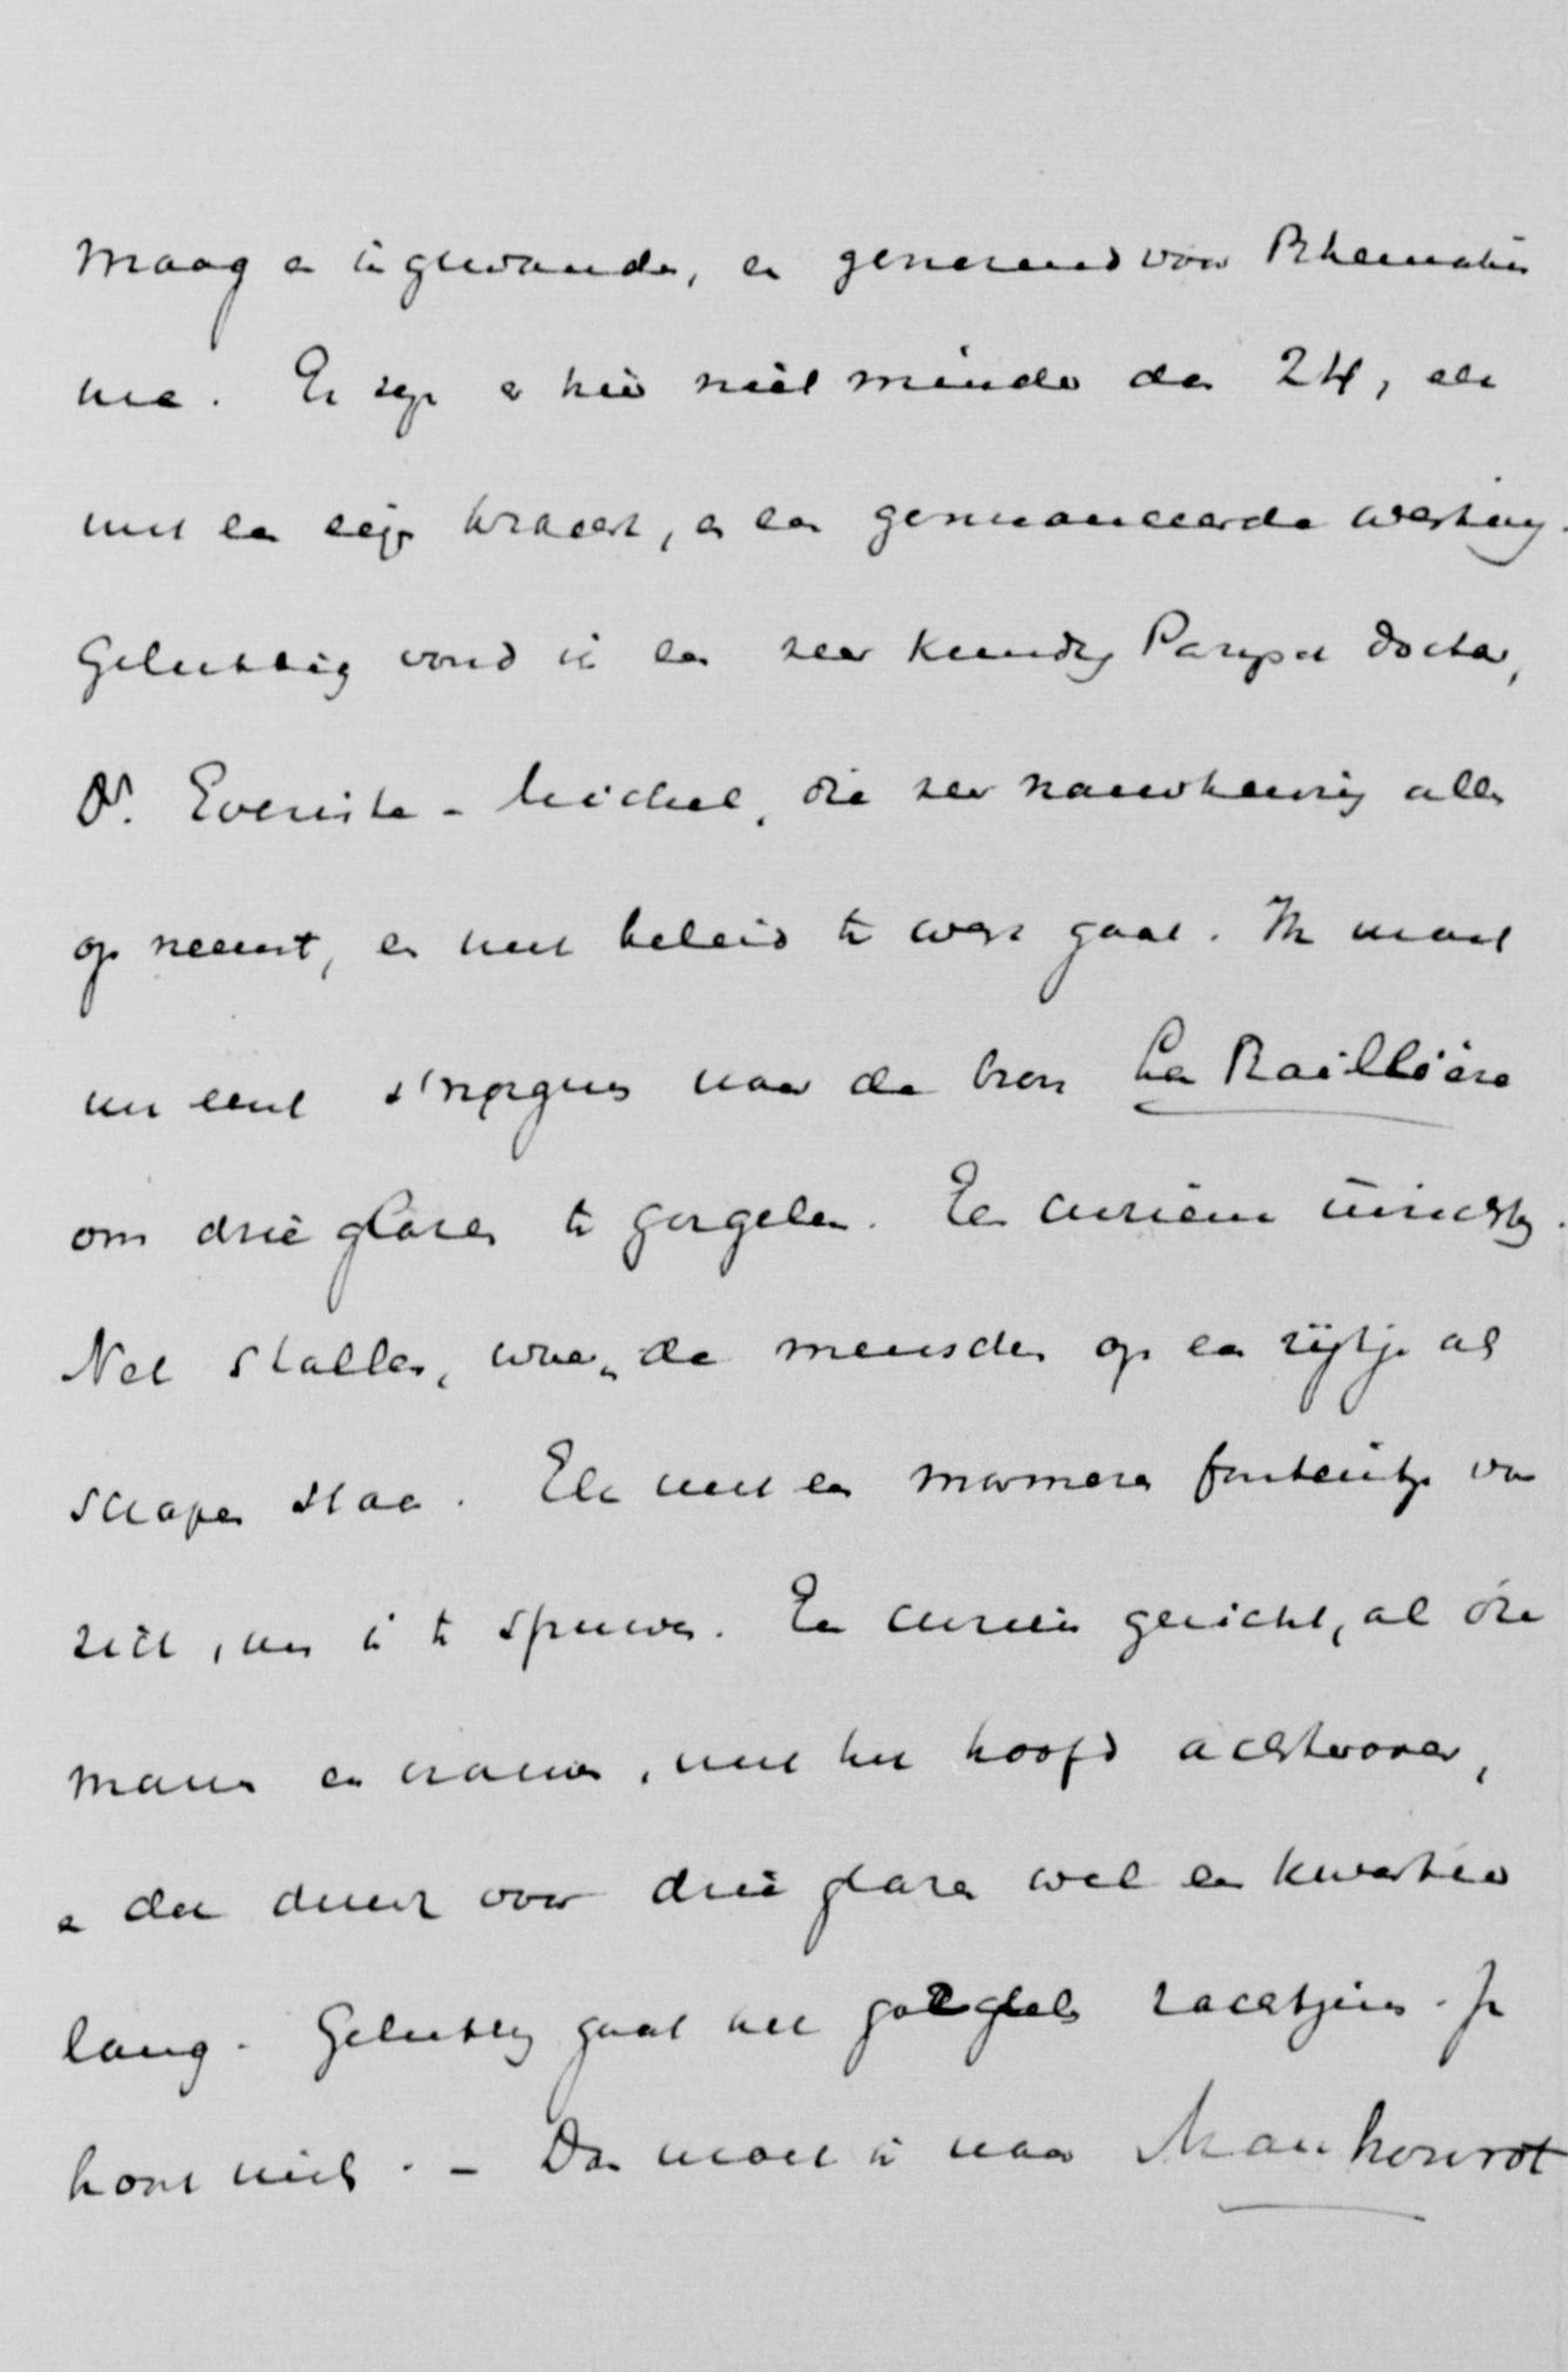 Maag en ingewanden, en genezend voor Rheumatis
me. Er zijn er hier niet minder dan 24, elk
met een eigen kracht, en een genuanceerde werking.
Gelukkig vond ik een zeer kundig Parijsch doctor,
Dr. Evariste-Michel, die zeer nauwkeurig alles
op neemt, en met beleid te werk gaat. Ik moet
nu eerst 's morgens naar de bron La Raillière
om drie glazen te gorgelen. Een curieuse inrichting.
Net stallen, waar de menschen op een rijtje als
schapen staan. Elk met een marmeren fonteintje voor
zich, om in te spuwen. Een curieus gezicht, al die
mannen en vrouwen, met het hoofd achterover,
en dat duurt voor drie glazen wel een kwartier
lang. Gelukkig gaat het gorgelen zachtjens. Je
hoort niets. – Dan moet ik naar Mauhourat